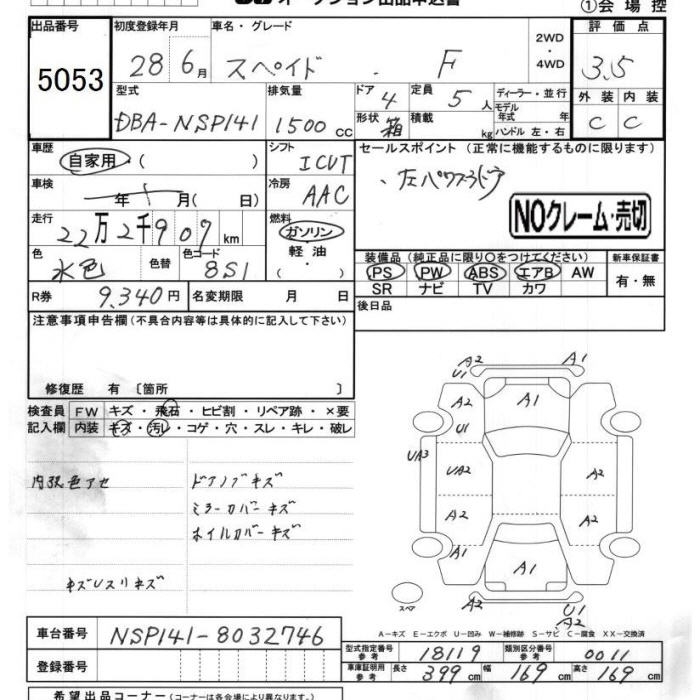 オークション出品申込書
①会場控
出品番号 初度登録年月 車名・グレード 2WD・4WD 評価点
5053 28 6月 スペイド F 3.5
型式 排気量 ドア 4 定員 5人 ディーラー・並行 外装 内装
DBA-NSP141 1500cc 形状 箱 積載 kg モデル年式 年 ハンドル 左・右 C C
車歴 自家用・( ) シフト ICVT セールスポイント (正常に機能するものに限ります)
車検 年 月( 日) 冷房 AAC ・左パワスラドア
走行 22万2千907km 燃料 ガソリン・軽油・( ) NOクレーム・売切
色 水色 色替 色コード 8S1 装備品(純正品に限り○をつけてください) 新車保証書
PS PW ABS エアB AW 有・無
R券 9,340円 名変期限 月 日 SR ナビ TV カワ
注意事項申告欄(不具合内容等は具体的に記入して下さい) 後日品
修復歴 有 〔箇所 〕
検査員 FW キズ・飛石・ヒビ割・リペア跡・×要
記入欄 内装 キズ・汚レ・コゲ・穴・スレ・キレ・破レ
内張色アセ ドアノブキズ
ミラーカバーキズ
ホイルカバーキズ
キズUスリキズ
A2 A1
U1
A2 A1
U1
UA3 UA2 A2
A2 A2
A1 A1
スペア U1
A2
A-キズ E-エクボ U-凹み W-補修跡 S-サビ C-腐食 XX-交換済
車台番号 NSP141-8032746
登録番号
型式指定番号 参考 18119 類別区分番号 参考 0011
車庫証明用 参考 長さ 399cm 幅 169cm 高さ 169cm
希望出品コーナー(コーナーは各会場により異なります。)